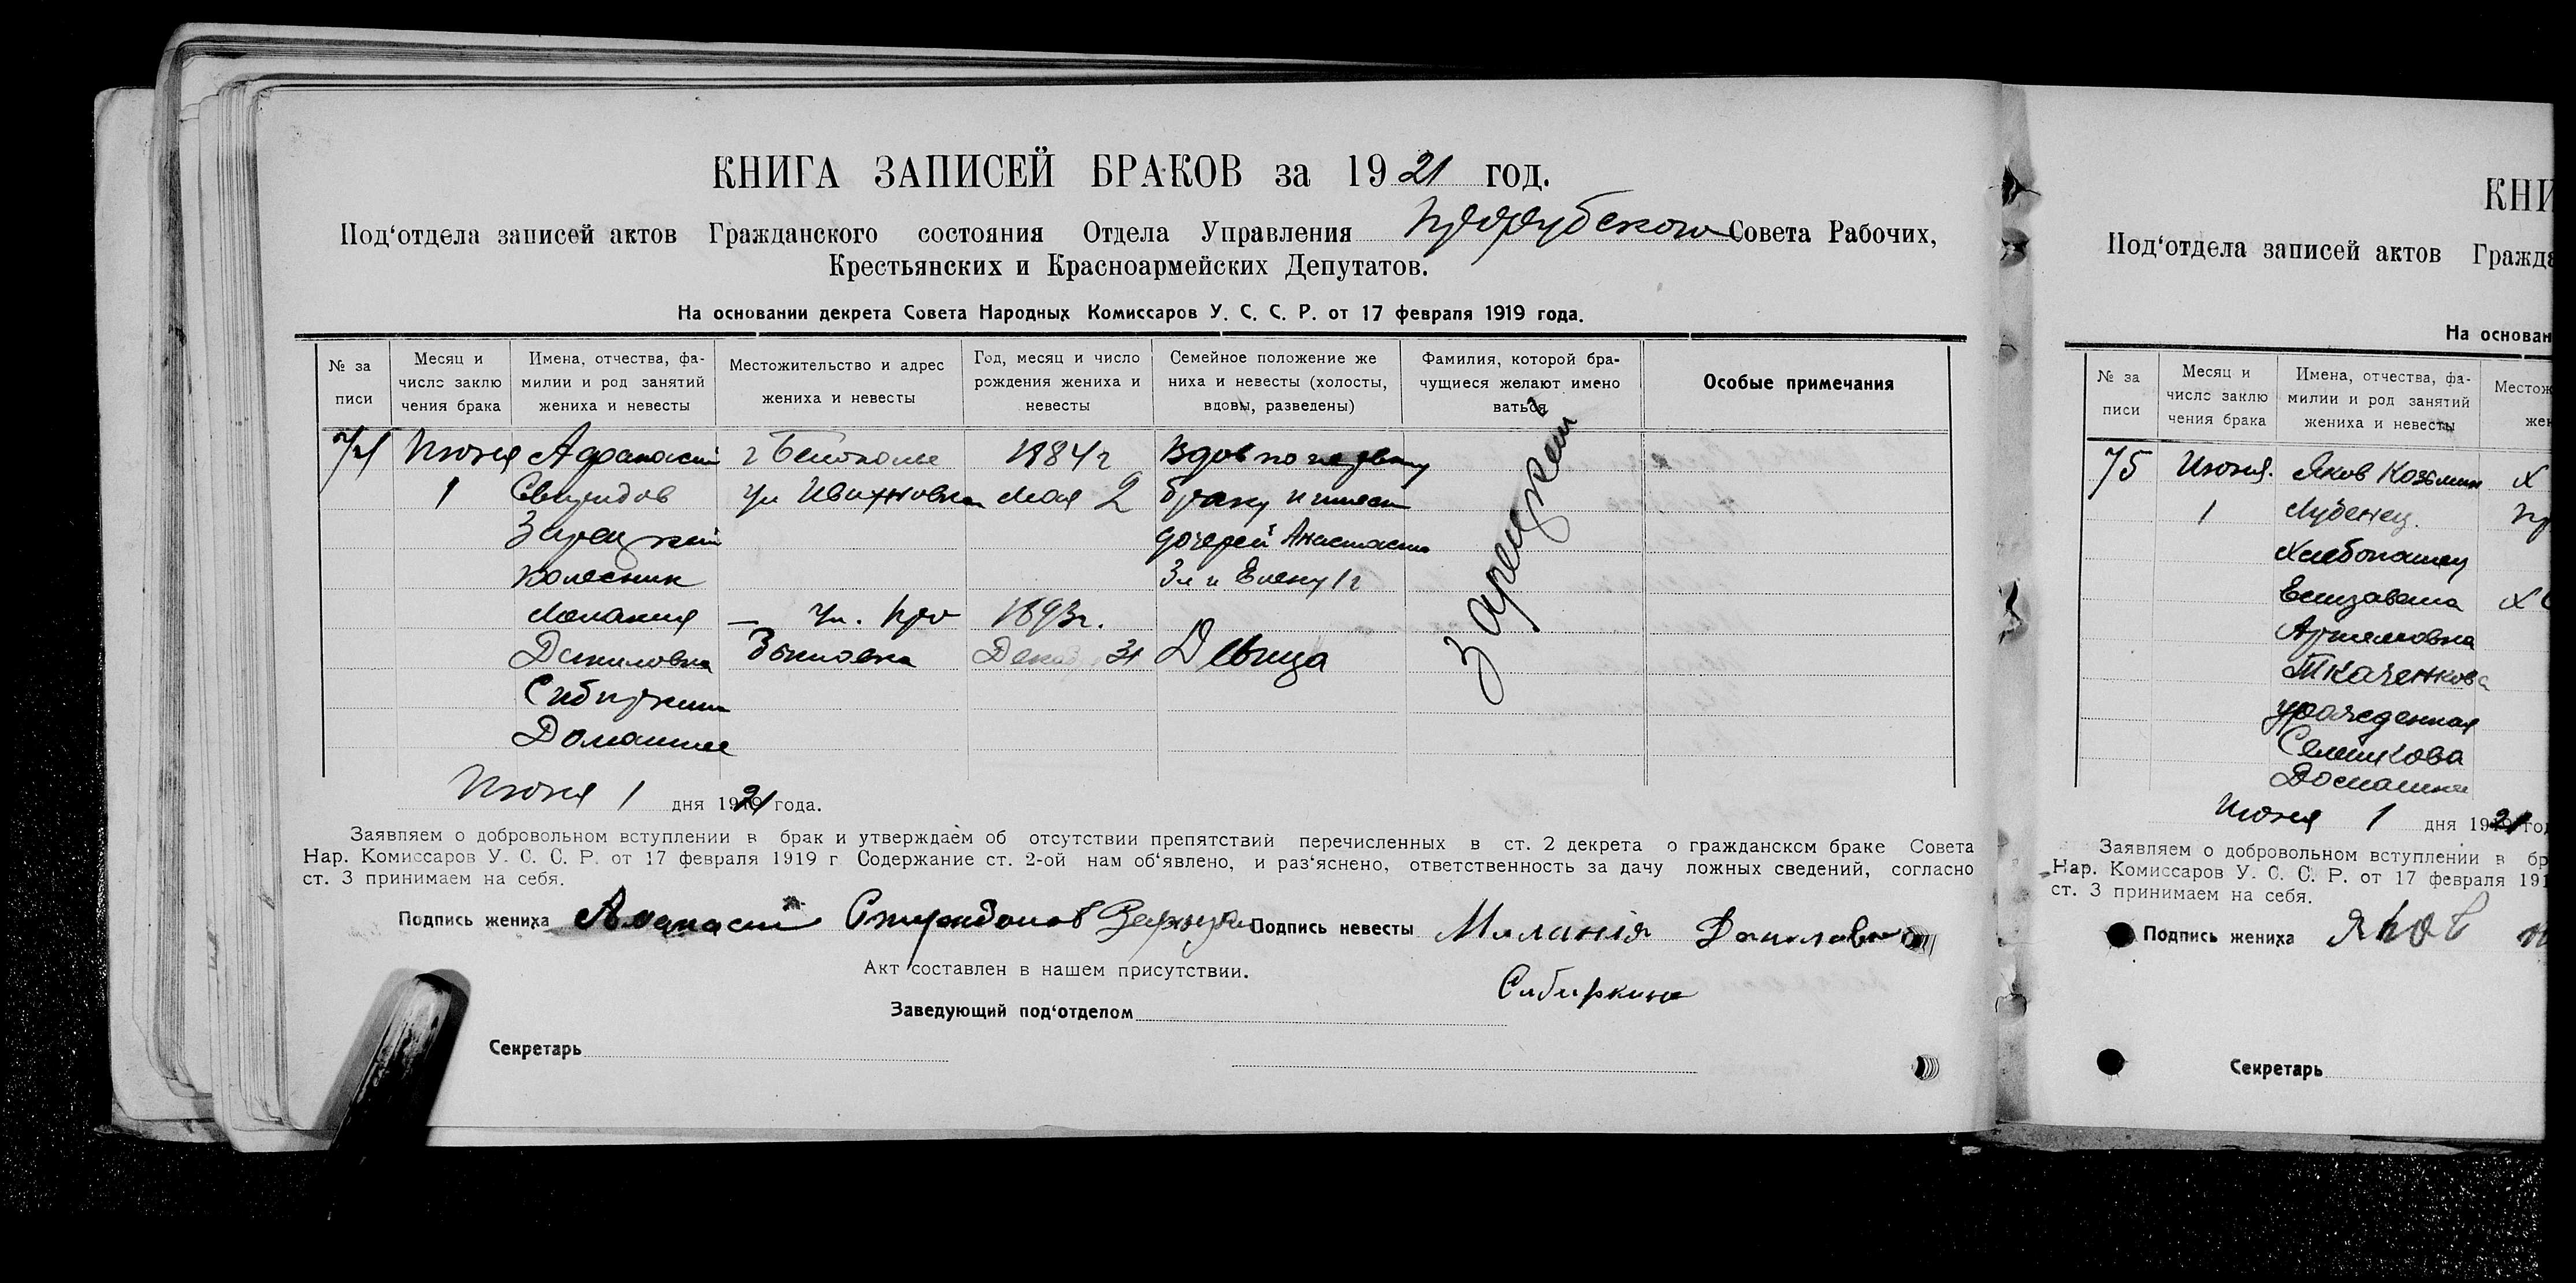 КНИГА ЗАПИСЕЙ БРАКОВ за 1921 год.
Под‘отдела записей актов Гражданского состояния Отдела Управления Прорубского Совета Рабочих,
Крестьянских и Красноармейских Депутатов.
На основании декрета Совета Народных Комиссаров У. С. С. Р. от 17 февраля 1919 года.
№ за
писи
Месяц и
число заклю
чения брака
Имена, отчества, фа-
милии и род занятий
жениха и невесты
Местожительство и адрес
жениха и невесты
Год, месяц и число
рождения жениха и
невесты
Семейное положение же
ниха и невесты (холосты,
вдовы, разведены)
Фамилия, которой бра-
чущиеся желают имено
ваться
Особые примечания
74
Июня
1
Афанасий
Свиридов
Зарецкий
колесник
Мелания
Даниловна
Сибиркин
Домашнее
г Белополье
ул Ивановка
— ул. Про
1884 г
Мая 2
1893 г.
Декаб 31
Вдов по первому
браку имеет
дочерей Анастасию
3 л и Елену 1 г
Девица
Зарецкий
Июня 1 дня 1921 года.
Заявляем о добровольном вступлении в брак и утверждаем об отсутствии препятствий перечисленных в ст. 2 декрета о гражданском браке Совета
Нар. Комиссаров У. С. С. Р. от 17 февраля 1919 г Содержание ст. 2-ой нам об‘явлено, и раз‘яснено, ответственность за дачу ложных сведений, согласно
ст. 3 принимаем на себя.
Подпись жениха Афанасий Спиридонов Зарецкий Подпись невесты Миланія Данилавна
Сибиркина
Акт составлен в нашем присутствии.
Заведующий под‘отделом
Секретарь
КНИ
Под‘отдела записей актов Гражда
На основан
№ за
писи
Месяц и
число заклю
чения брака
Имена, отчества, фа-
милии и род занятий
жениха и невесты
Местож
жен
75
Июня.
1
Яков Козьмин
Лубенец
Хлебопашец
Елизавета
Артемовна
Ткаченкова
урожденная
Селинкова
Домашнее
Х
пр
Июня 1 дня 1921 год
Заявляем о добровольном вступлении в бр
Нар. Комиссаров У. С. С. Р. от 17 февраля 191
ст. 3 принимаем на себя.
Подпись жениха Яков
Секретарь